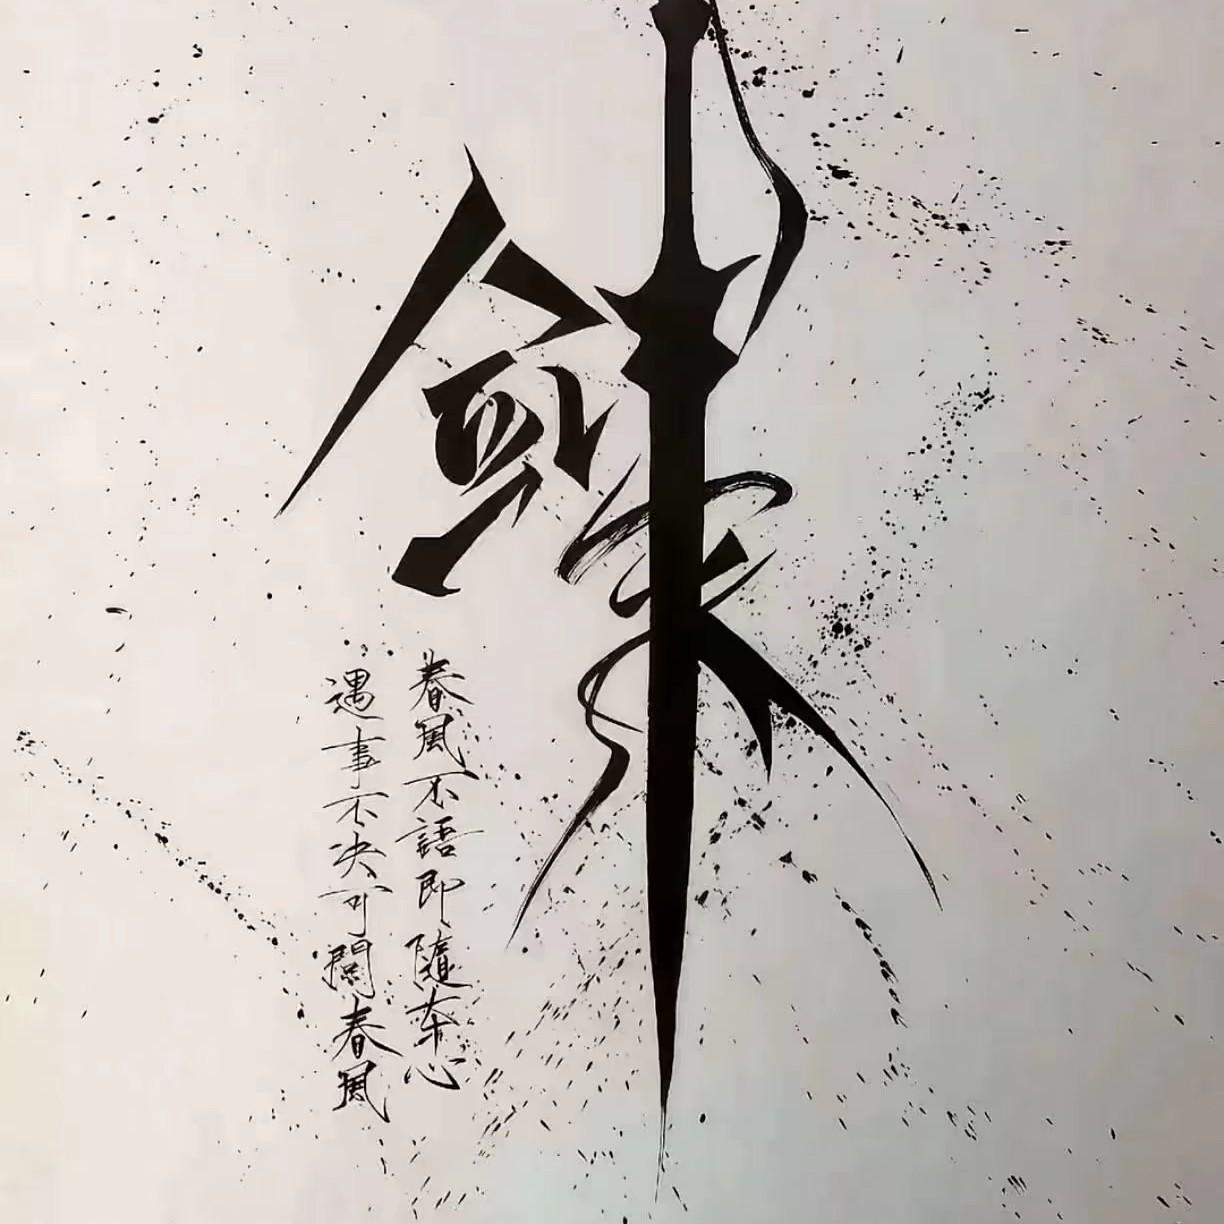 剑来
遇事不决可問春風
春風不語即隨本心